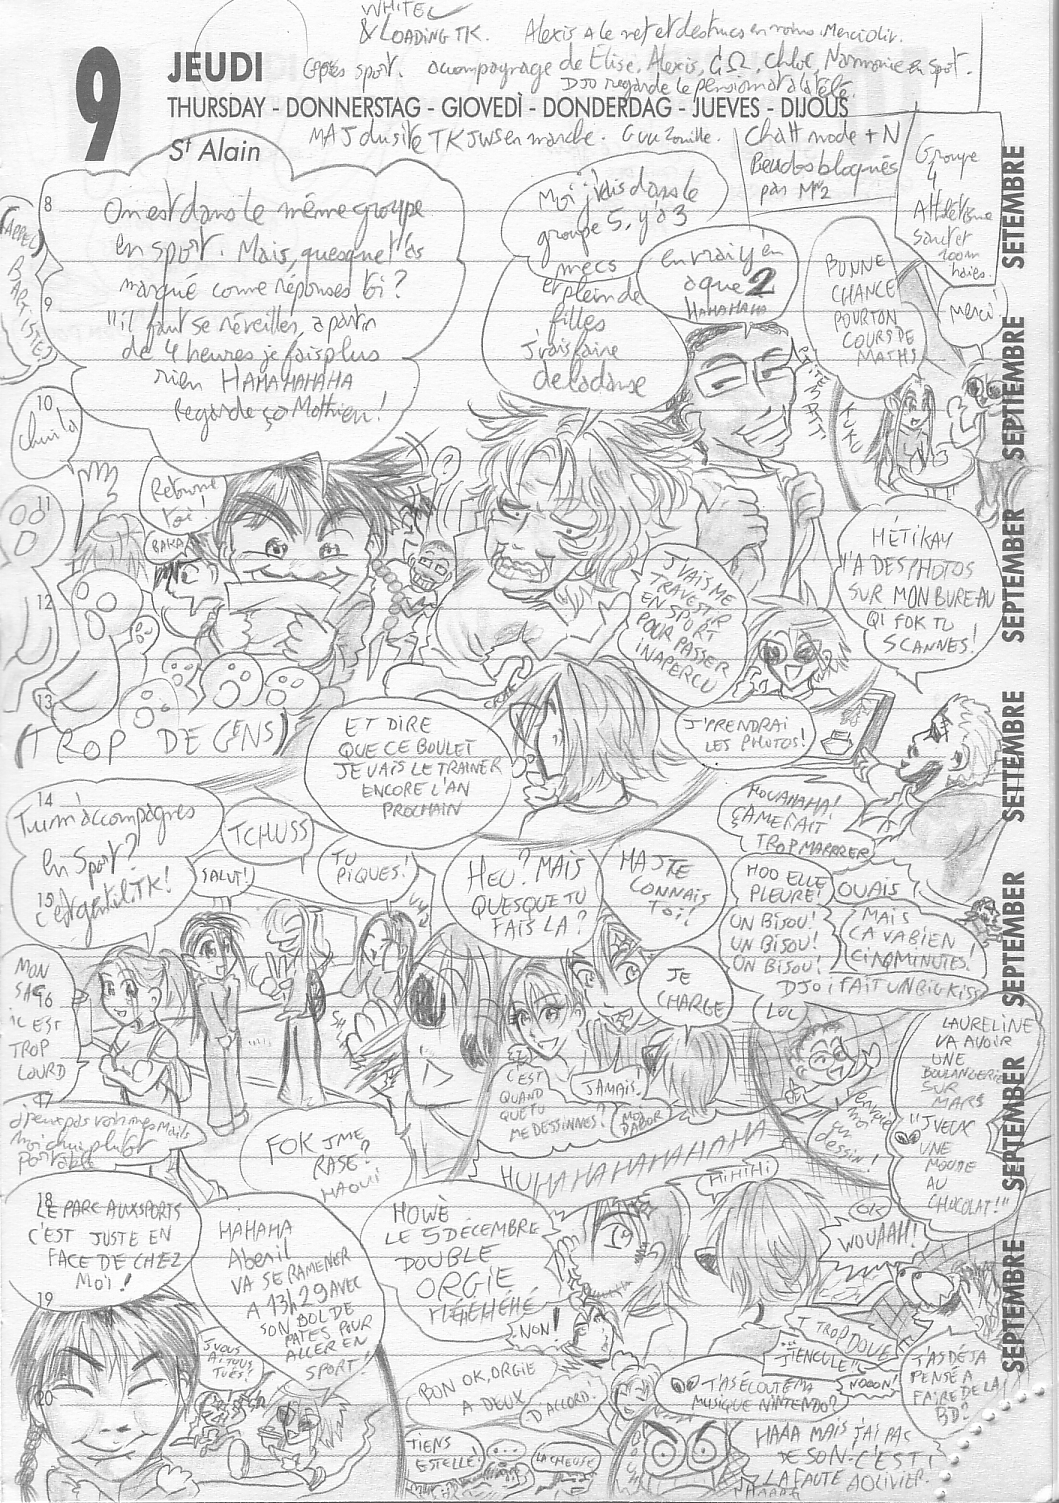 WHITE
& LOADING TK.
Alexis a le net et des trucs en moins. Merci Oliv.
9
JEUDI
Après sport. accompagnage de Elise, Alexis, GΩ, Chloé, Normonie en sport.
DJO regarde le pensionnat à la télé.
THURSDAY - DONNERSTAG - GIOVEDÌ - DONDERDAG - JUEVES - DIJOUS
MAJ du site TK JWS en marche.
St Alain
Chatt mode + N
Pseudos bloqués
par MN2
Groupe
4
Athlétisme
saut et
100m
haies.
8
9
10
11
12
13
14
15
16
17
18
19
20
SETEMBRE
SEPTIEMBRE
SEPTEMBER
SETTEMBRE
SEPTEMBER
SEPTEMBER
SEPTEMBRE
(APPEL)
BAPTISTE?
On est dans le même groupe
en sport. Mais, quesque t'as
marqué comme réponses toi?
"il faut se réveiller, à partir
de 4 heures je fais plus
rien HAHAHAHAHA
Regarde ça Mathieu!
Moi j'vais dans le
groupe 5, y'a 3
mecs
et plein de
filles
j'vais faire
de la danse
en vrai y'en
a que 2
HAHAHAHA
BONNE
CHANCE
POUR TON
COURS DE
MATHS
Merci!
chui là
Retourne
toi!
BAKA
?
J'VAIS ME
TRAVESTIR
EN SPORT
POUR PASSER
INAPERÇU
HÉTIKAY
Y'A DES PHOTOS
SUR MON BUREAU
QI FOK TU
SCANNES!
(TROP DE GENS)
ET DIRE
QUE CE BOULET
JE VAIS LE TRAINER
ENCORE L'AN
PROCHAIN
J'PRENDRAI
LES PHOTOS!
MOUAHAHA!
ÇA MERAIT
TROP MARRRER
Tu m'accompagnes
en Sport?
c'est gentil TK!
TCHUSS
SALUT!
TU
PIQUES!
HEU? MAIS
QUESQUE TU
FAIS LA?
MAJTE
CONNAIS
TOI!
HOO ELLE
PLEURE!
UN BISOU!
UN BISOU!
UN BISOU!
OUAIS
MAIS
ÇA VA BIEN
CINQ MINUTES!
DJO i FAIT UN BIG KISS
LOL
MON
SAC
iL EST
TROP
LOURD
JE
CHARGE
C'EST
QUAND
QUE TU
ME DESSINNES?
JAMAIS!
MOI
D'ABOR
envoie
moi
un
dessin!
LAURELINE
VA AVOIR
UNE
BOULANGERIE
SUR
MARS
"JVEUX
UNE
MOUNE
AU
CHOCOLAT!"
j'peux pas voir mes mails
moi chui plutôt
portable
FOK JME
RASE?
HAOUI
HUHAHAHAHAHAHA
HiHiHi
OK
WOUAAH!
LE PARC AUX SPORTS
C'EST JUSTE EN
FACE DE CHEZ
MOI!
HAHAHA
Abenil
VA SE RAMENER
A 13h29 AVEC
SON BOL DE
PATES POUR
ALLER EN
SPORT!
HOWÈ
LE 5 DÉCEMBRE
DOUBLE
ORGIE
NON!
J'VOUS
AI TOUS
TUÉS?
BON OK, ORGIE
A DEUX
D'ACCORD.
I TROP DOUÉ
J'IENCULE!!
NOOON!
T'AS DÉJA
PENSÉ A
FAIRE DE LA
BD?
T'AS ECOUTÉ MA
MUSIQUE NINTENDO?
HAAA MAIS J'AI PAS
DE SON C'EST
LA FAUTE A OLIVIER.
TIENS
ESTELLE!